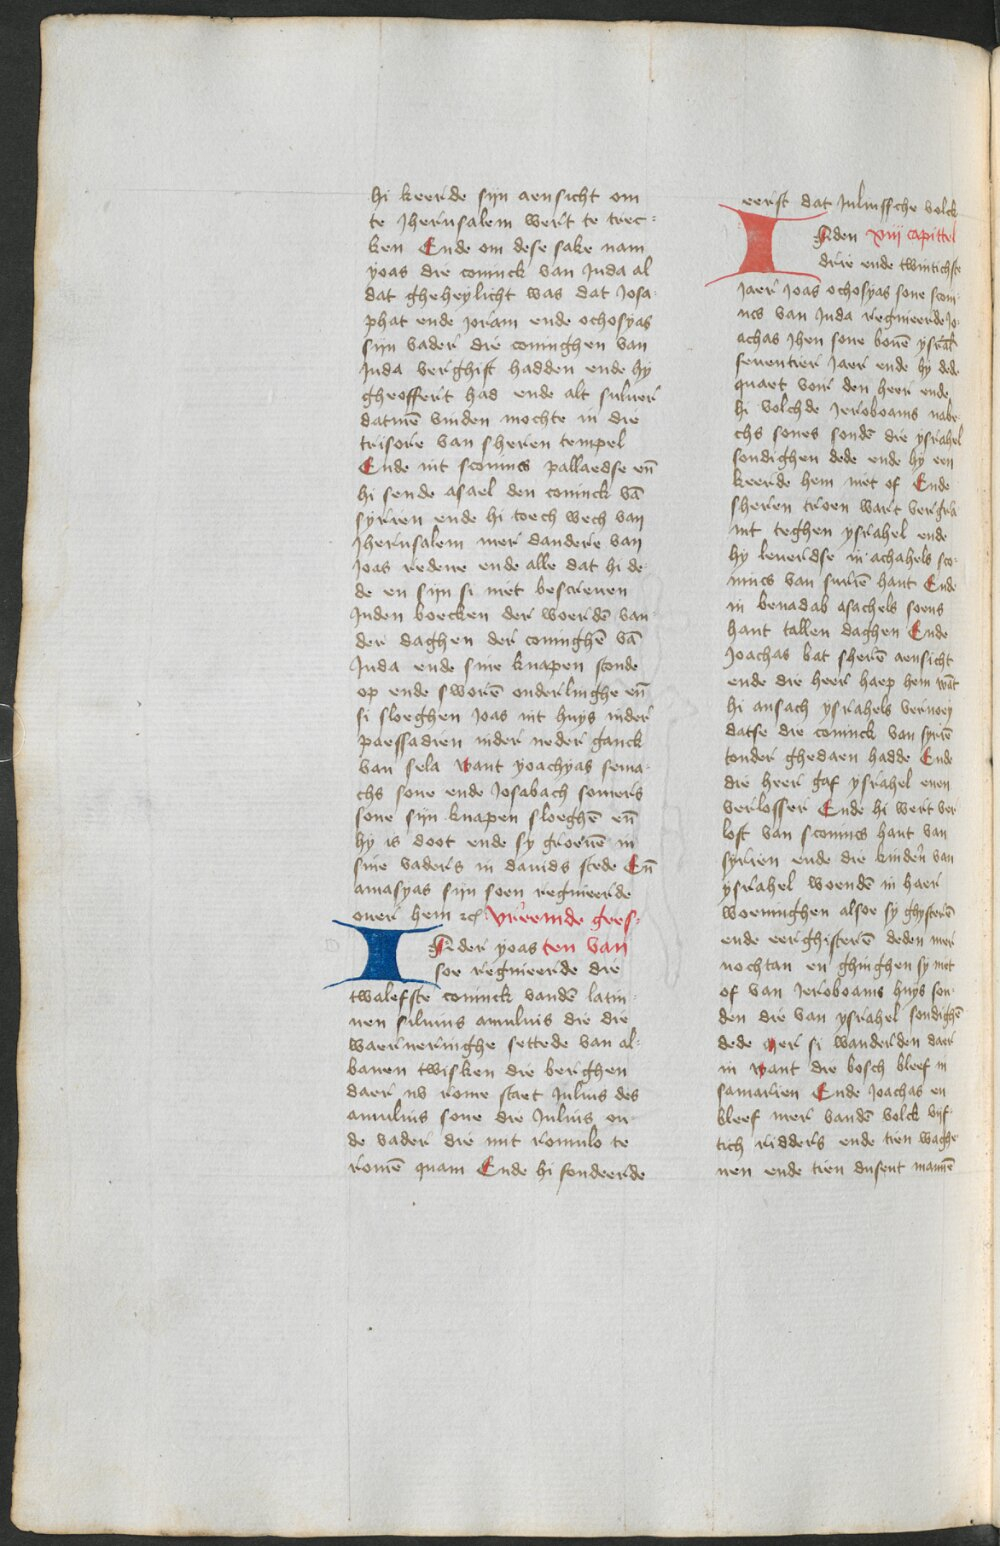 hi keerde sijn aensicht om
te Jherusalem wert te trec-
ken Ende om dese sake nam
yoas die coninck van Juda al
dat gheheylicht was dat Josa-
phat ende joram ende ochosyas
sijn vader die coninghen van
Juda verghift hadden ende hy
gheoffert had ende alt suluer
datmē vinden mochte in die
trisore van sheren tempel
Ende uit sconincs pallaedse eñ
hi sende asael den coninck vā
syrien ende hi toech wech van
Jherusalem mer dandere van
Joas redene ende alle dat hi de-
de en sijn si niet bescreuen
Inden boecken der woerdē van
der daghen der coninghē vā
Juda ende sine knapen stonde
op ende sworē onderlinghe eñ
si sloeghen Joas int huys inder
paessadien inder neder ganck
van sela want yoachyas sema-
chs sone ende Josabach somers
sone sijn knapen sloeghē eñ
hy is doot ende sy groeuē in
sine vaders in dauids stede Eñ
amasyas sijn soen regnieerde
ouer hem Vreemde gees-
Inder yoas ten van
soe regnieerde die
twalefste coninck vandē latin-
nen siluius amulius die die
waerneringhe settede van al-
banen twisken die berghen
daer nv rome staet Julius des
amulius sone die Julius ou-
de vader die mit romulo te
romē quam Ende hi fondeerde
eerst dat Juliussche volck
Inden xiij capittel
drie ende twintichste
Jaer Joas ochosyas sone sconi-
ncs van Juda regnieerde Jo-
achas Jhen sone bouē ysrāel
seuentier Jaer ende hy dede
quaet voir den heer ende
hi volchde Jeroboams nabe-
chs sones sondē die ysrahel
sondighen dede ende hy een
keerde hem niet of Ende
sheren troen wart vergra
int teghen ysrahel ende
hy leuerdse in achahels sco-
nincs van suriē hant Ende
in benadab asachels soens
hant tallen daghen Ende
Joachas bat sherē aensicht
ende die heer haep hem wāt
hi ansach ysrahels vernoey
datse die coninck van syriē
tonder ghedaen hadde Ende
die heer gaf ysrahel enen
verlosser Ende hi wert ver
lost van sconincs hant van
syrien ende die kinder van
ysrahel woendē in haer
woeninghen alsoe sy ghysterē
ende eerghisterē deden mer
nochtan en ghinghen sy niet
of van Jeroboams huys son-
den die van ysrahel sondighē
dede mer si wanderden daer
in want die bosch bleef in
samarien Ende Joachas en
bleef mer vandē volck vijf-
tich ridders ende tien waghe
nen ende tien dusent mannē